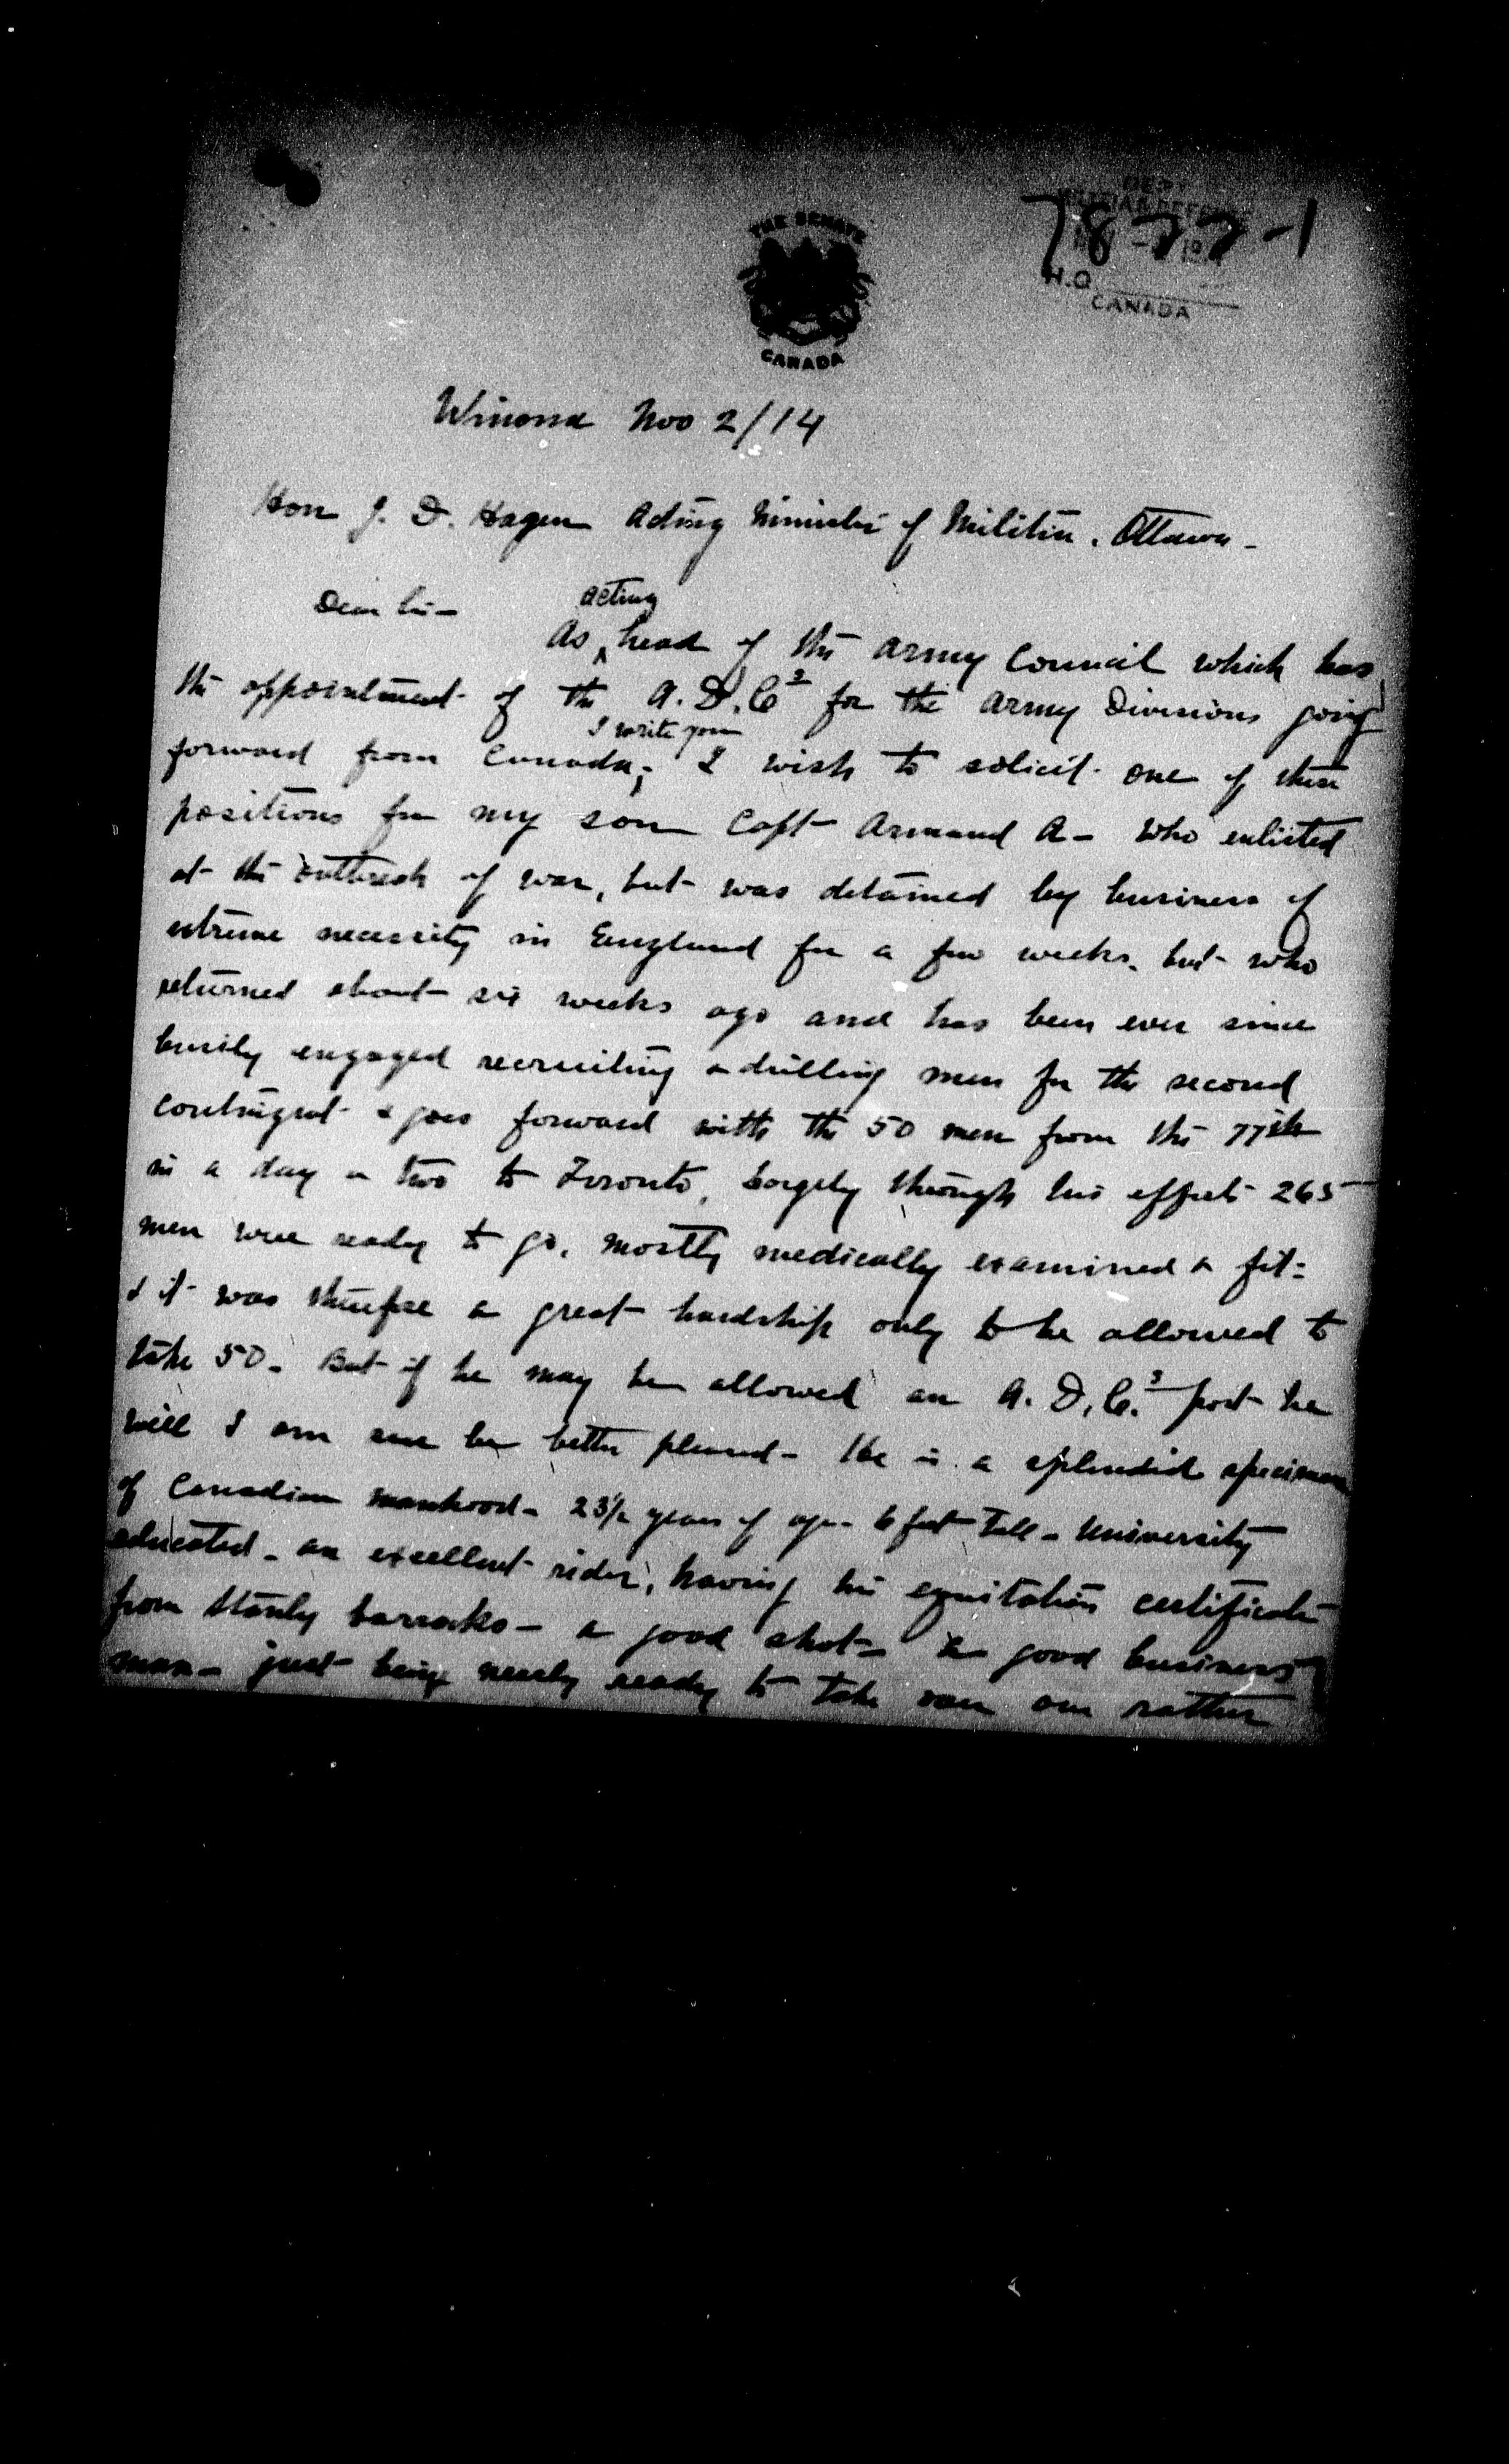 THE SENATE
CANADA
DEPT
MILITIA & DEFENCE
7822-1
H.Q.
CANADA
Winona Nov 2/14
Hon J. D. Hazen Acting Minister of Militia. Ottawa -
Dear Sir -
acting
As head of the Army Council which has
the appointment of the A.D.C.s for the Army Divisions going
I write you
forward from Canada; I wish to solicit one of these
positions for my son Capt Armand A - who enlisted
at the outbreak of war, but was detained by business of
extreme necessity in England for a few weeks. but who
returned about six weeks ago and has been ever since
busily engaged recruiting & drilling men for the second
contingent & goes forward with the 50 men from the 77th
in a day or two to Toronto, largely through his effort 265
men were ready to go, mostly medically examined & fit:
& it was therefore a great hardship only to be allowed to
take 50. But if he may be allowed an A.D.C.s post he
will I am sure be better pleased - He is a splendid specimen
of Canadian manhood - 23½ years of age - 6 feet tall - University
educated - an excellent rider, having his equitation certificate
from Stanly barracks - a good shot - a good business
man - just being nearly ready to take over our rather